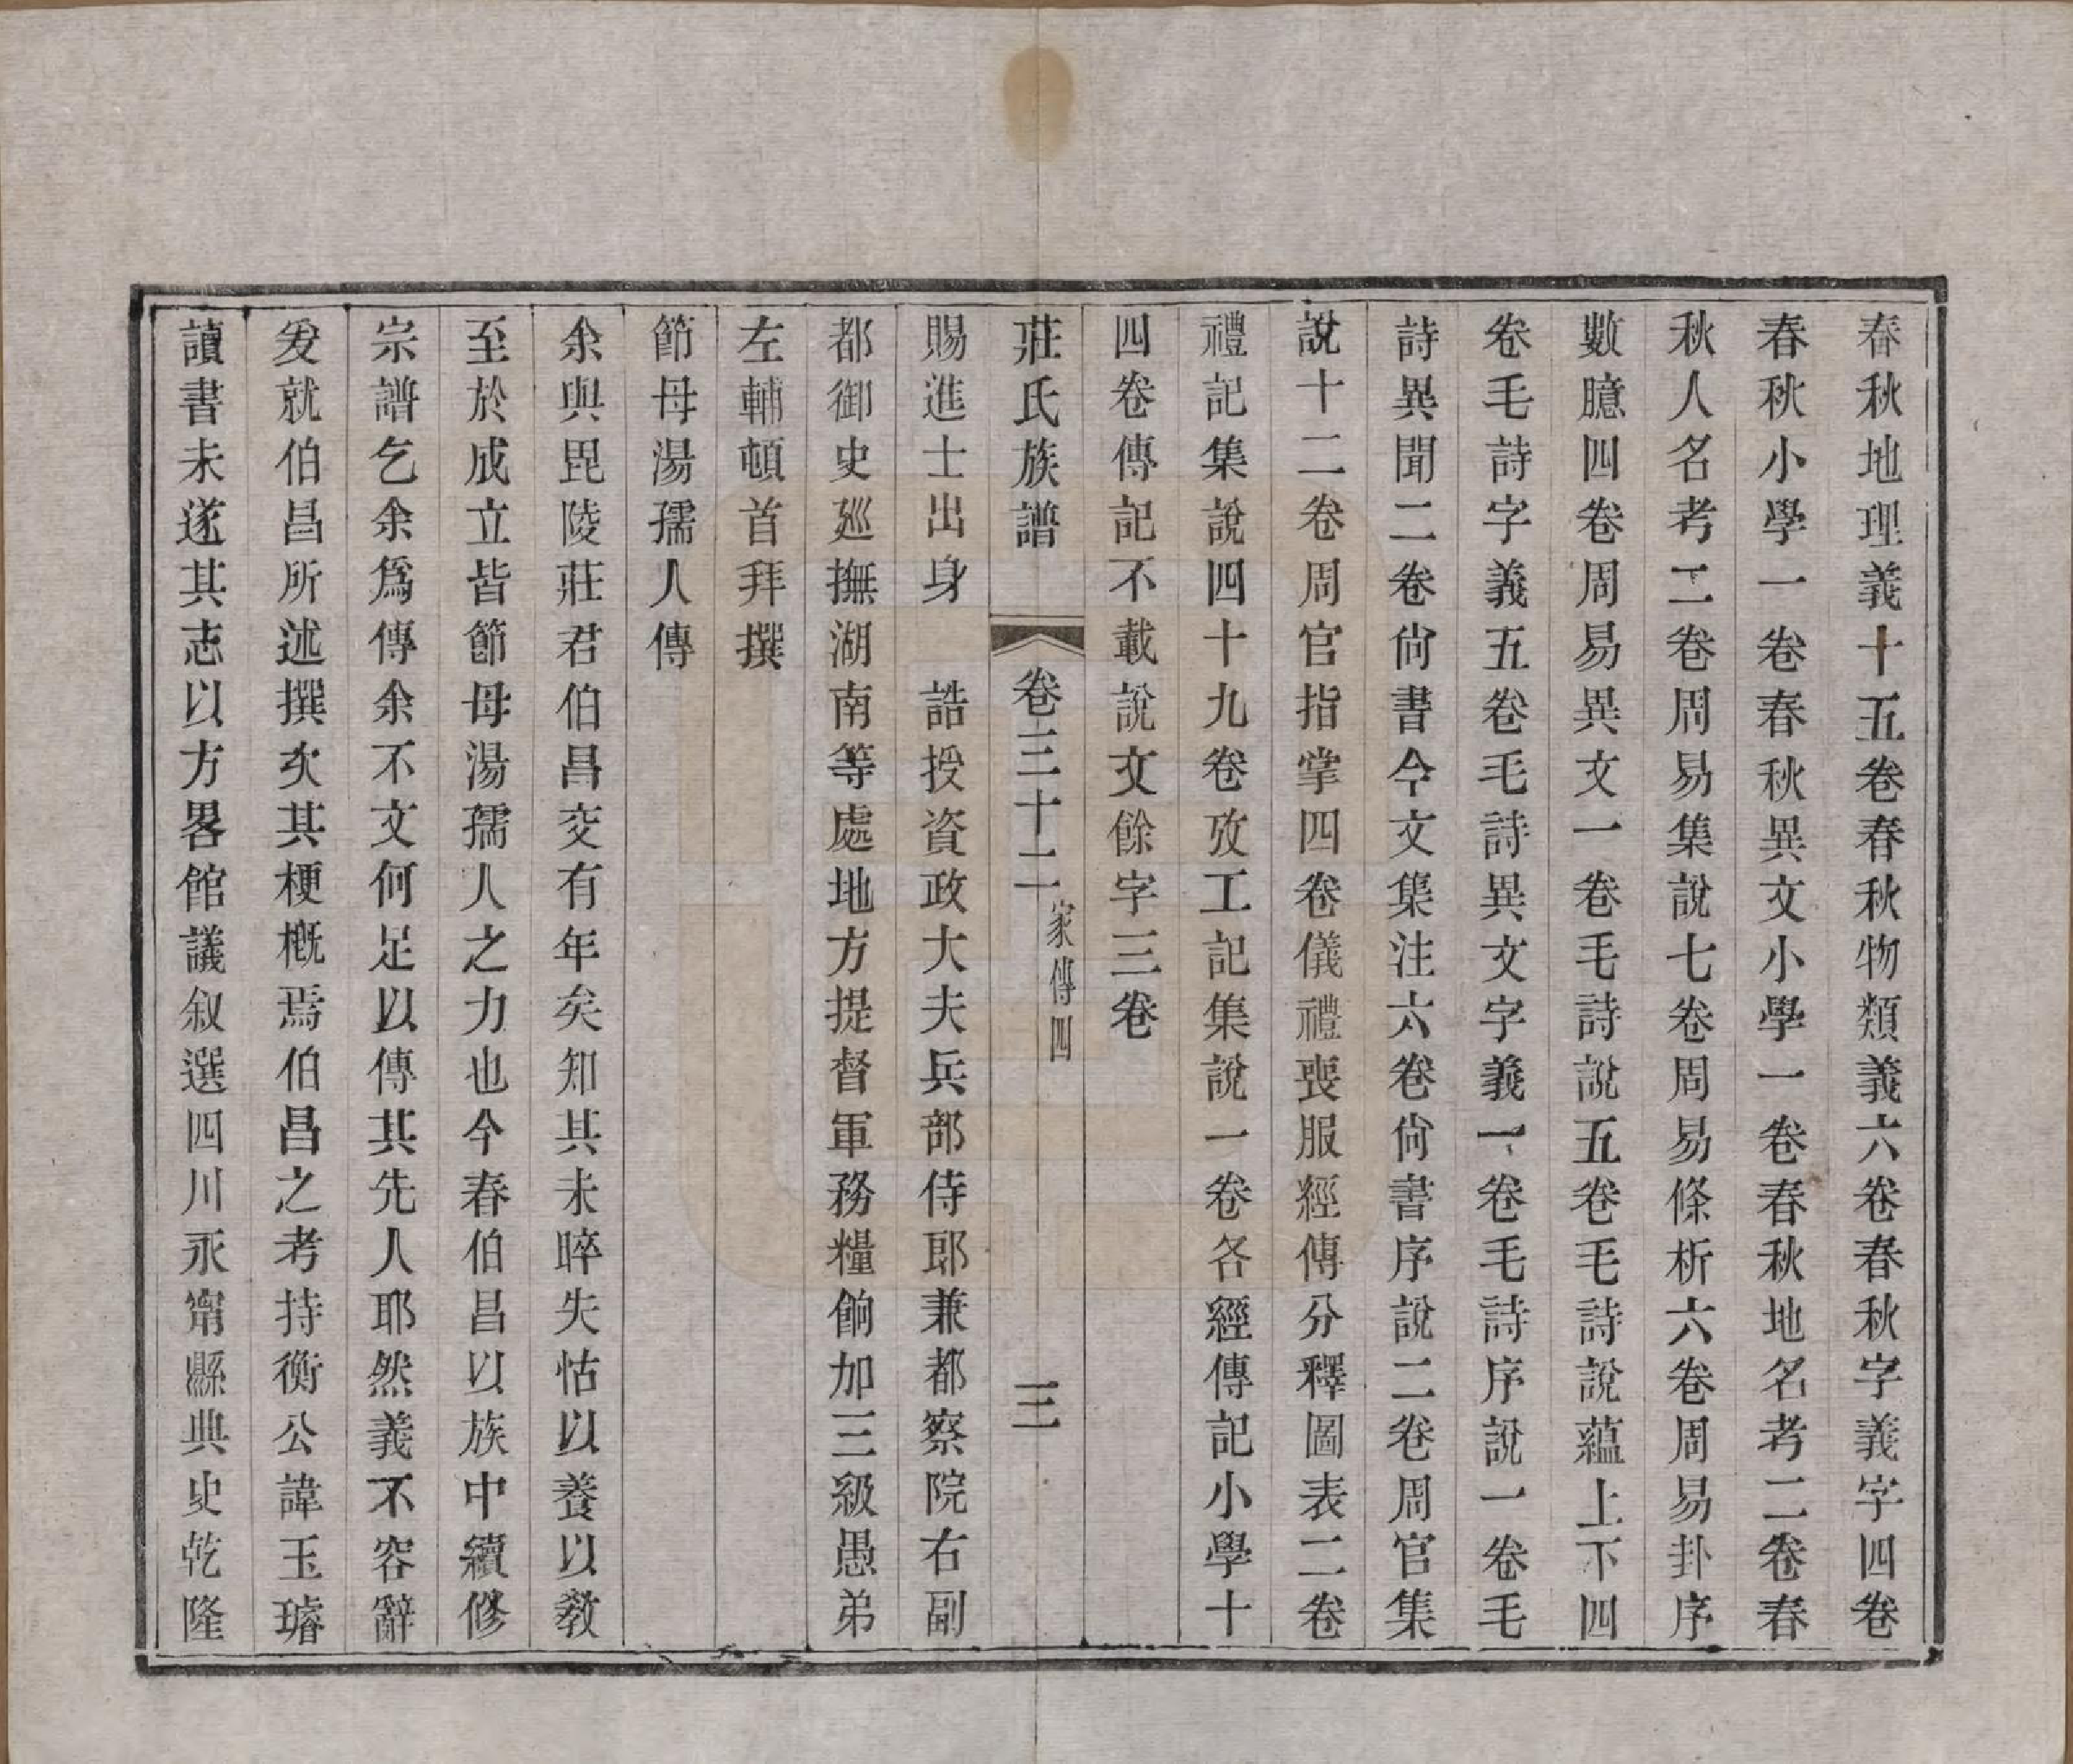 春秋地理義十五卷春秋物類義六卷春秋字義字四卷
春秋小學一卷春秋異文小學一卷春秋地名考二卷春
秋人名考二卷周易集說七卷周易條析六卷周易卦序
數臆四卷周易異文一卷毛詩說五卷毛詩說蘊上下四
卷毛詩字義五卷毛詩異文字義一卷毛詩序說一卷毛
詩異聞二卷尙書今文集注六卷尙書序說二卷周官集
說十二卷周官指掌四卷儀禮喪服經傳分釋圖表二卷
禮記集說四十九卷攷工記集說一卷各經傳記小學十
四卷傳記不載說文餘字三卷
莊氏族譜 卷三十二 家傳四 三
賜進士出身 誥授資政大夫兵部侍郎兼都察院右副
都御史廵撫湖南等處地方提督軍務糧餉加三級愚弟
左輔頓首拜撰
節母湯孺人傳
余與毘陵莊君伯昌交有年矣知其未晬失怙以養以敎
至於成立皆節母湯孺人之力也今春伯昌以族中續修
宗譜乞余爲傳余不文何足以傳其先人耶然義不容辭
爰就伯昌所述撰次其梗槪焉伯昌之考持衡公諱玉璿
讀書未遂其志以方畧館議叙選四川永甯縣典史乾隆